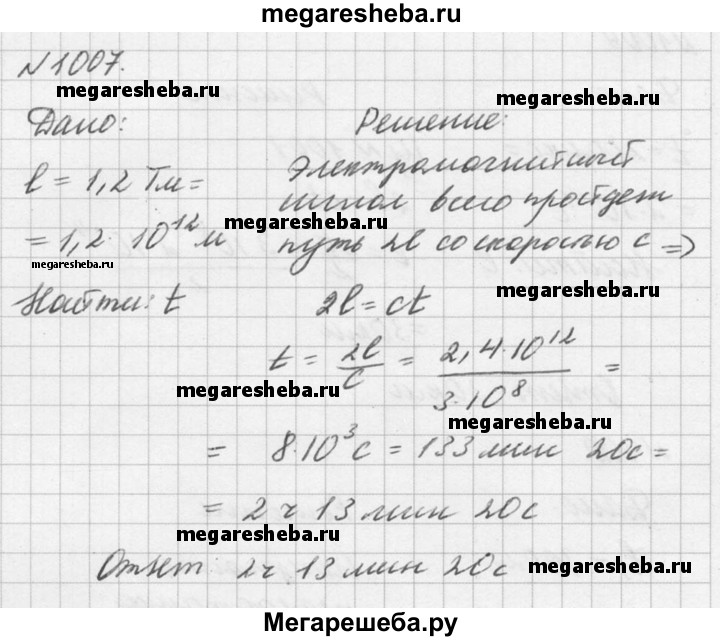 megaresheba.ru
N 1007.
megaresheba.ru
megaresheba.ru
Дано: Решение:
l = 1,2 Тм = Электромагнитный
сигнал всего пройдет
megaresheba.ru
= 1,2 · 10¹² м путь 2l со скоростью c ⇒
megaresheba.ru
megaresheba.ru
Найти: t 2l = ct
t = 2l/c = 2,4·10¹²/3·10⁸ =
megaresheba.ru
megaresheba.ru
= 8·10³ с = 133 мин 20с =
= 2 ч 13 мин 20с
megaresheba.ru
Ответ: 2ч 13 мин 20с
megaresheba.ru
Мегарешеба.ру